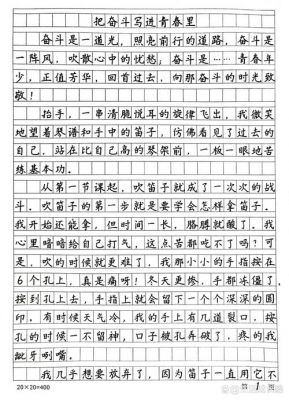 把奋斗写进青春里
奋斗是一道光，照亮前行的道路，奋斗是
一阵风，吹散心中的忧愁；奋斗是……青春年
少，正值芳华，回首过去，向那奋斗的时光致
敬！
抬手，一串清脆悦耳的旋律飞出，我微笑
地望着琴谱和手中的笛子，仿佛看见了过去的
自己，站在比自己高的琴架前，一板一眼地苦
练基本功。
从第一节课起，吹笛子就成了一次次的战
斗。吹笛子的第一步就是要学会怎样拿笛子。
我开始还能拿，但时间一长，胳膊就酸了。我
心里暗暗给自己打气，这点苦都吃不了吗？可
是，吹的时候就更难了，我那小小的手指按在
6个孔上，真是痛呀！冬天更惨，手都冻僵了
按到孔上去，手指上就会留下一个个深深的圆
印。有时候天气冷，我的手上有几道裂口，按
孔的时候一不留神，口子被孔弄破了，疼的我
龇牙咧嘴。
我几乎想要放弃了，因为笛子一直用它不
20×20=400
第1页